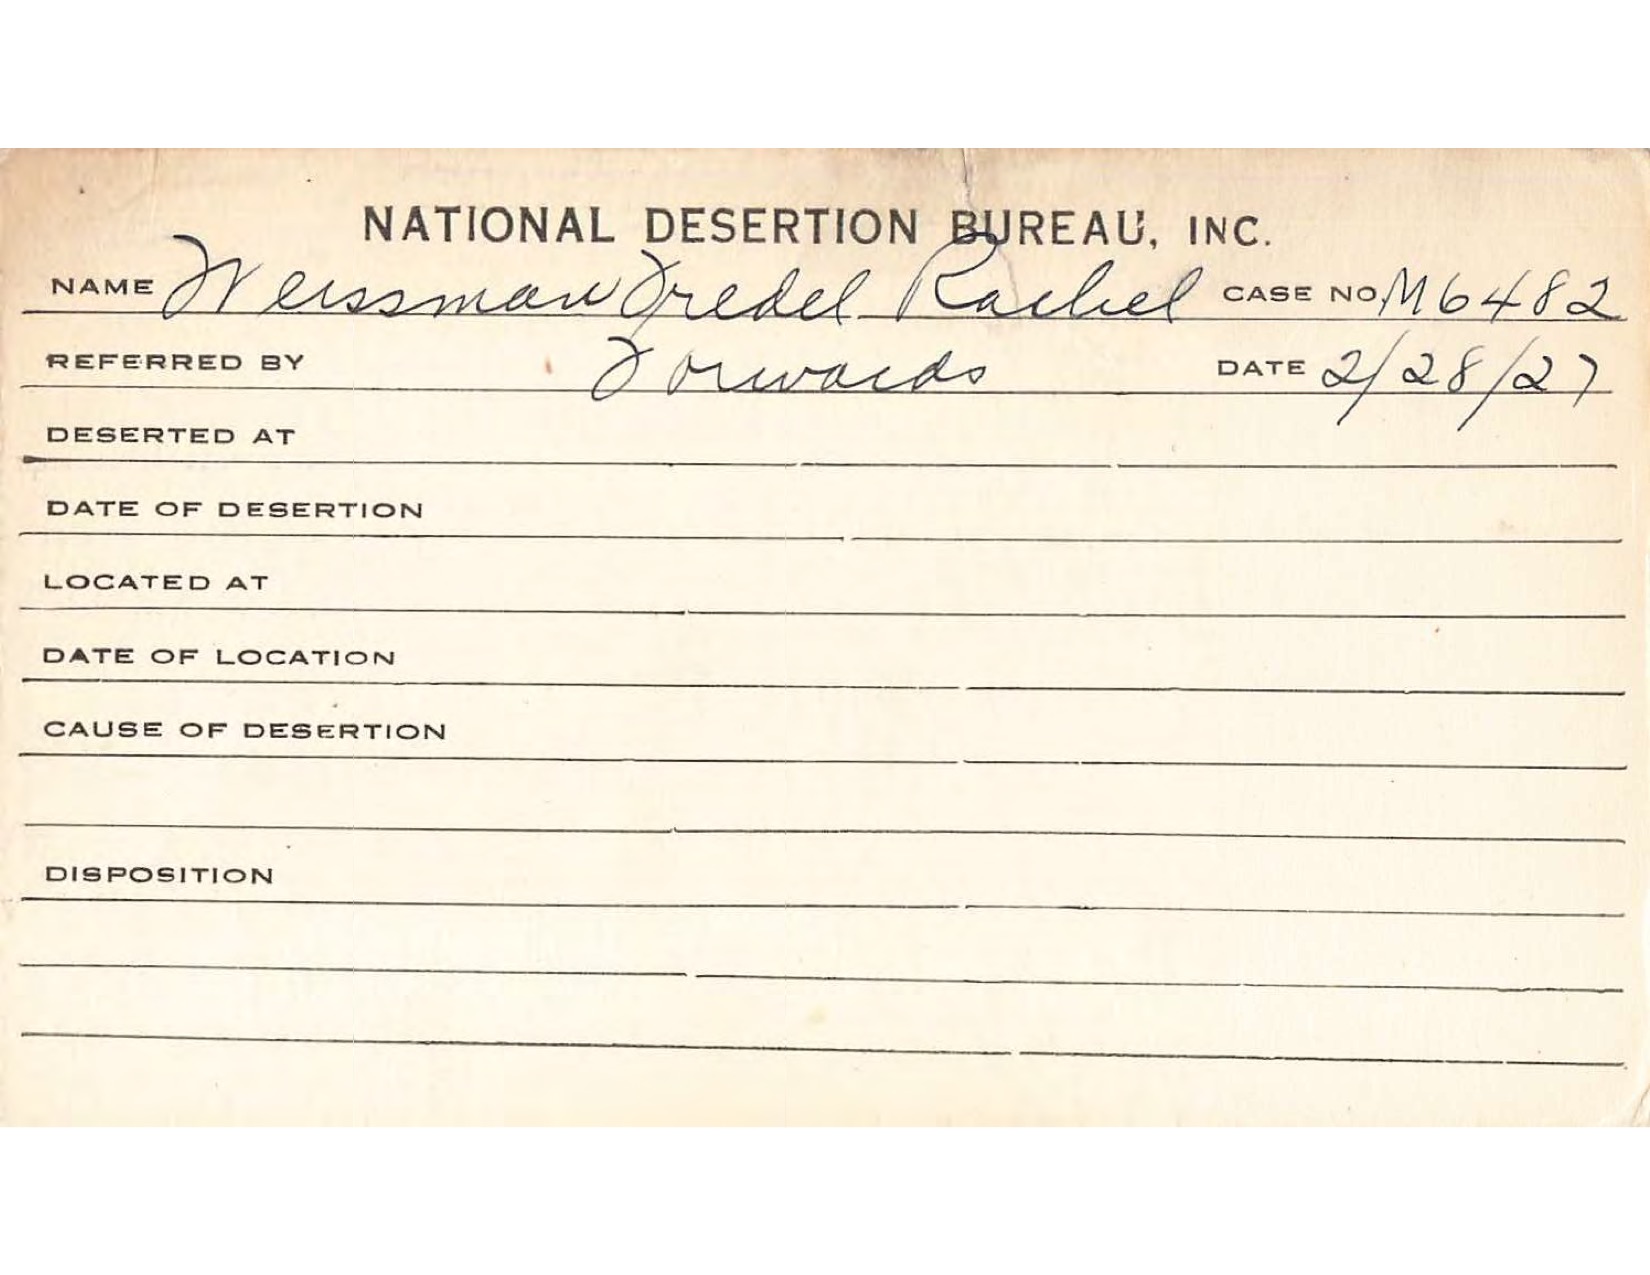 NATIONAL DESERTION BUREAU, INC.
NAME Weissman Fredel Rachel CASE NO. M6482
REFERRED BY Forwards DATE 2/28/27
DESERTED AT
DATE OF DESERTION
LOCATED AT
DATE OF LOCATION
CAUSE OF DESERTION
DISPOSITION